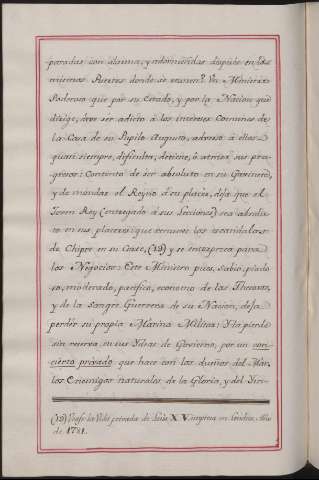 paradas con alarma, y adormecidas después en los
mismos Puertos donde se reunen? Un Ministro
Poderoso que por su Estado, y por la Nacion que
dirige, deve ser adicto à los intereses Comunes de
la Casa de su Pupilo Augusto, adverso à ellos
quasi siempre, dificulta, detiene, ò atrasa sus pro-
gresos: Contento de ser absoluto en su Govierno,
y de mandar el Reyno à su placer, deja que el
Joven Rey (entregado à sus Lecciones) sea absolu-
to en sus placeres; que renueve los escandalos
de Chipre en su Corte, (19) y se entorpezca para
los Negocios: Este Ministro pues, sabio, piado
so, moderado, pacifico, economo de los Thesoros,
y de la sangre Guerrera de su Nacion, deja
perder su propia Marina Militar: Y la pierde
sin reserva en sus Ydeas de Govierno, por un con-
cierto privado que hace con los dueños del Mar,
los Enemigos naturales de la Gloria, y del Ynte-
(19) Vease la Vida privada de Luis XV. impresa en Londres, Año
de 1781.